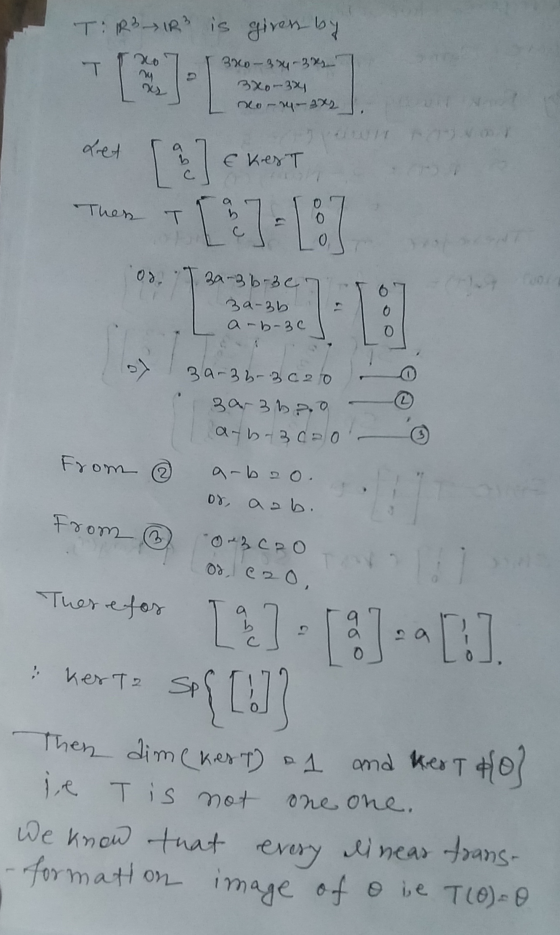 T: ℝ³→ℝ³ is given by
T [x₀ x₁ x₂] = [3x₀-3x₁-3x₂ 3x₀-3x₁ x₀-x₁-3x₂].
Let [a b c] ∈ KerT
Then T [a b c] = [0 0 0]
or, [3a-3b-3c 3a-3b a-b-3c] = [0 0 0]
⇒ 3a-3b-3c=0 —— ①
3a-3b=0 —— ②
a-b-3c=0 —— ③
From ② a-b=0.
or, a=b.
From ③ 0-3c=0
or, c=0.
Therefor [a b c] = [a a 0] = a [1 1 0].
∴ KerT= Sp{[1 1 0]}
Then dim(KerT) = 1 and KerT ≠{θ}
i.e T is not one one.
We know that every linear trans-
-formation image of θ ie T(θ)=θ